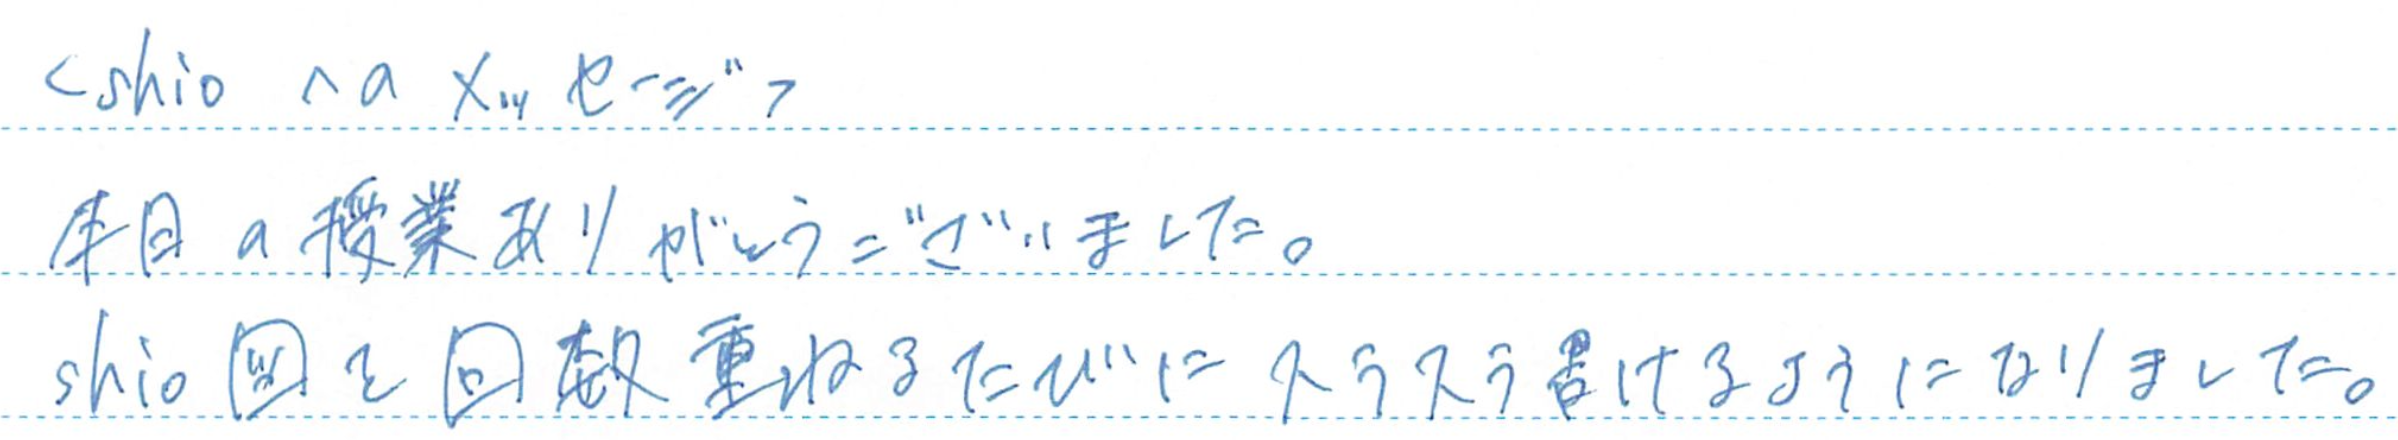 <shioへのメッセージ>
本日の授業ありがとうございました。
shio図を回数重ねるたびにスラスラ書けるようになりました。